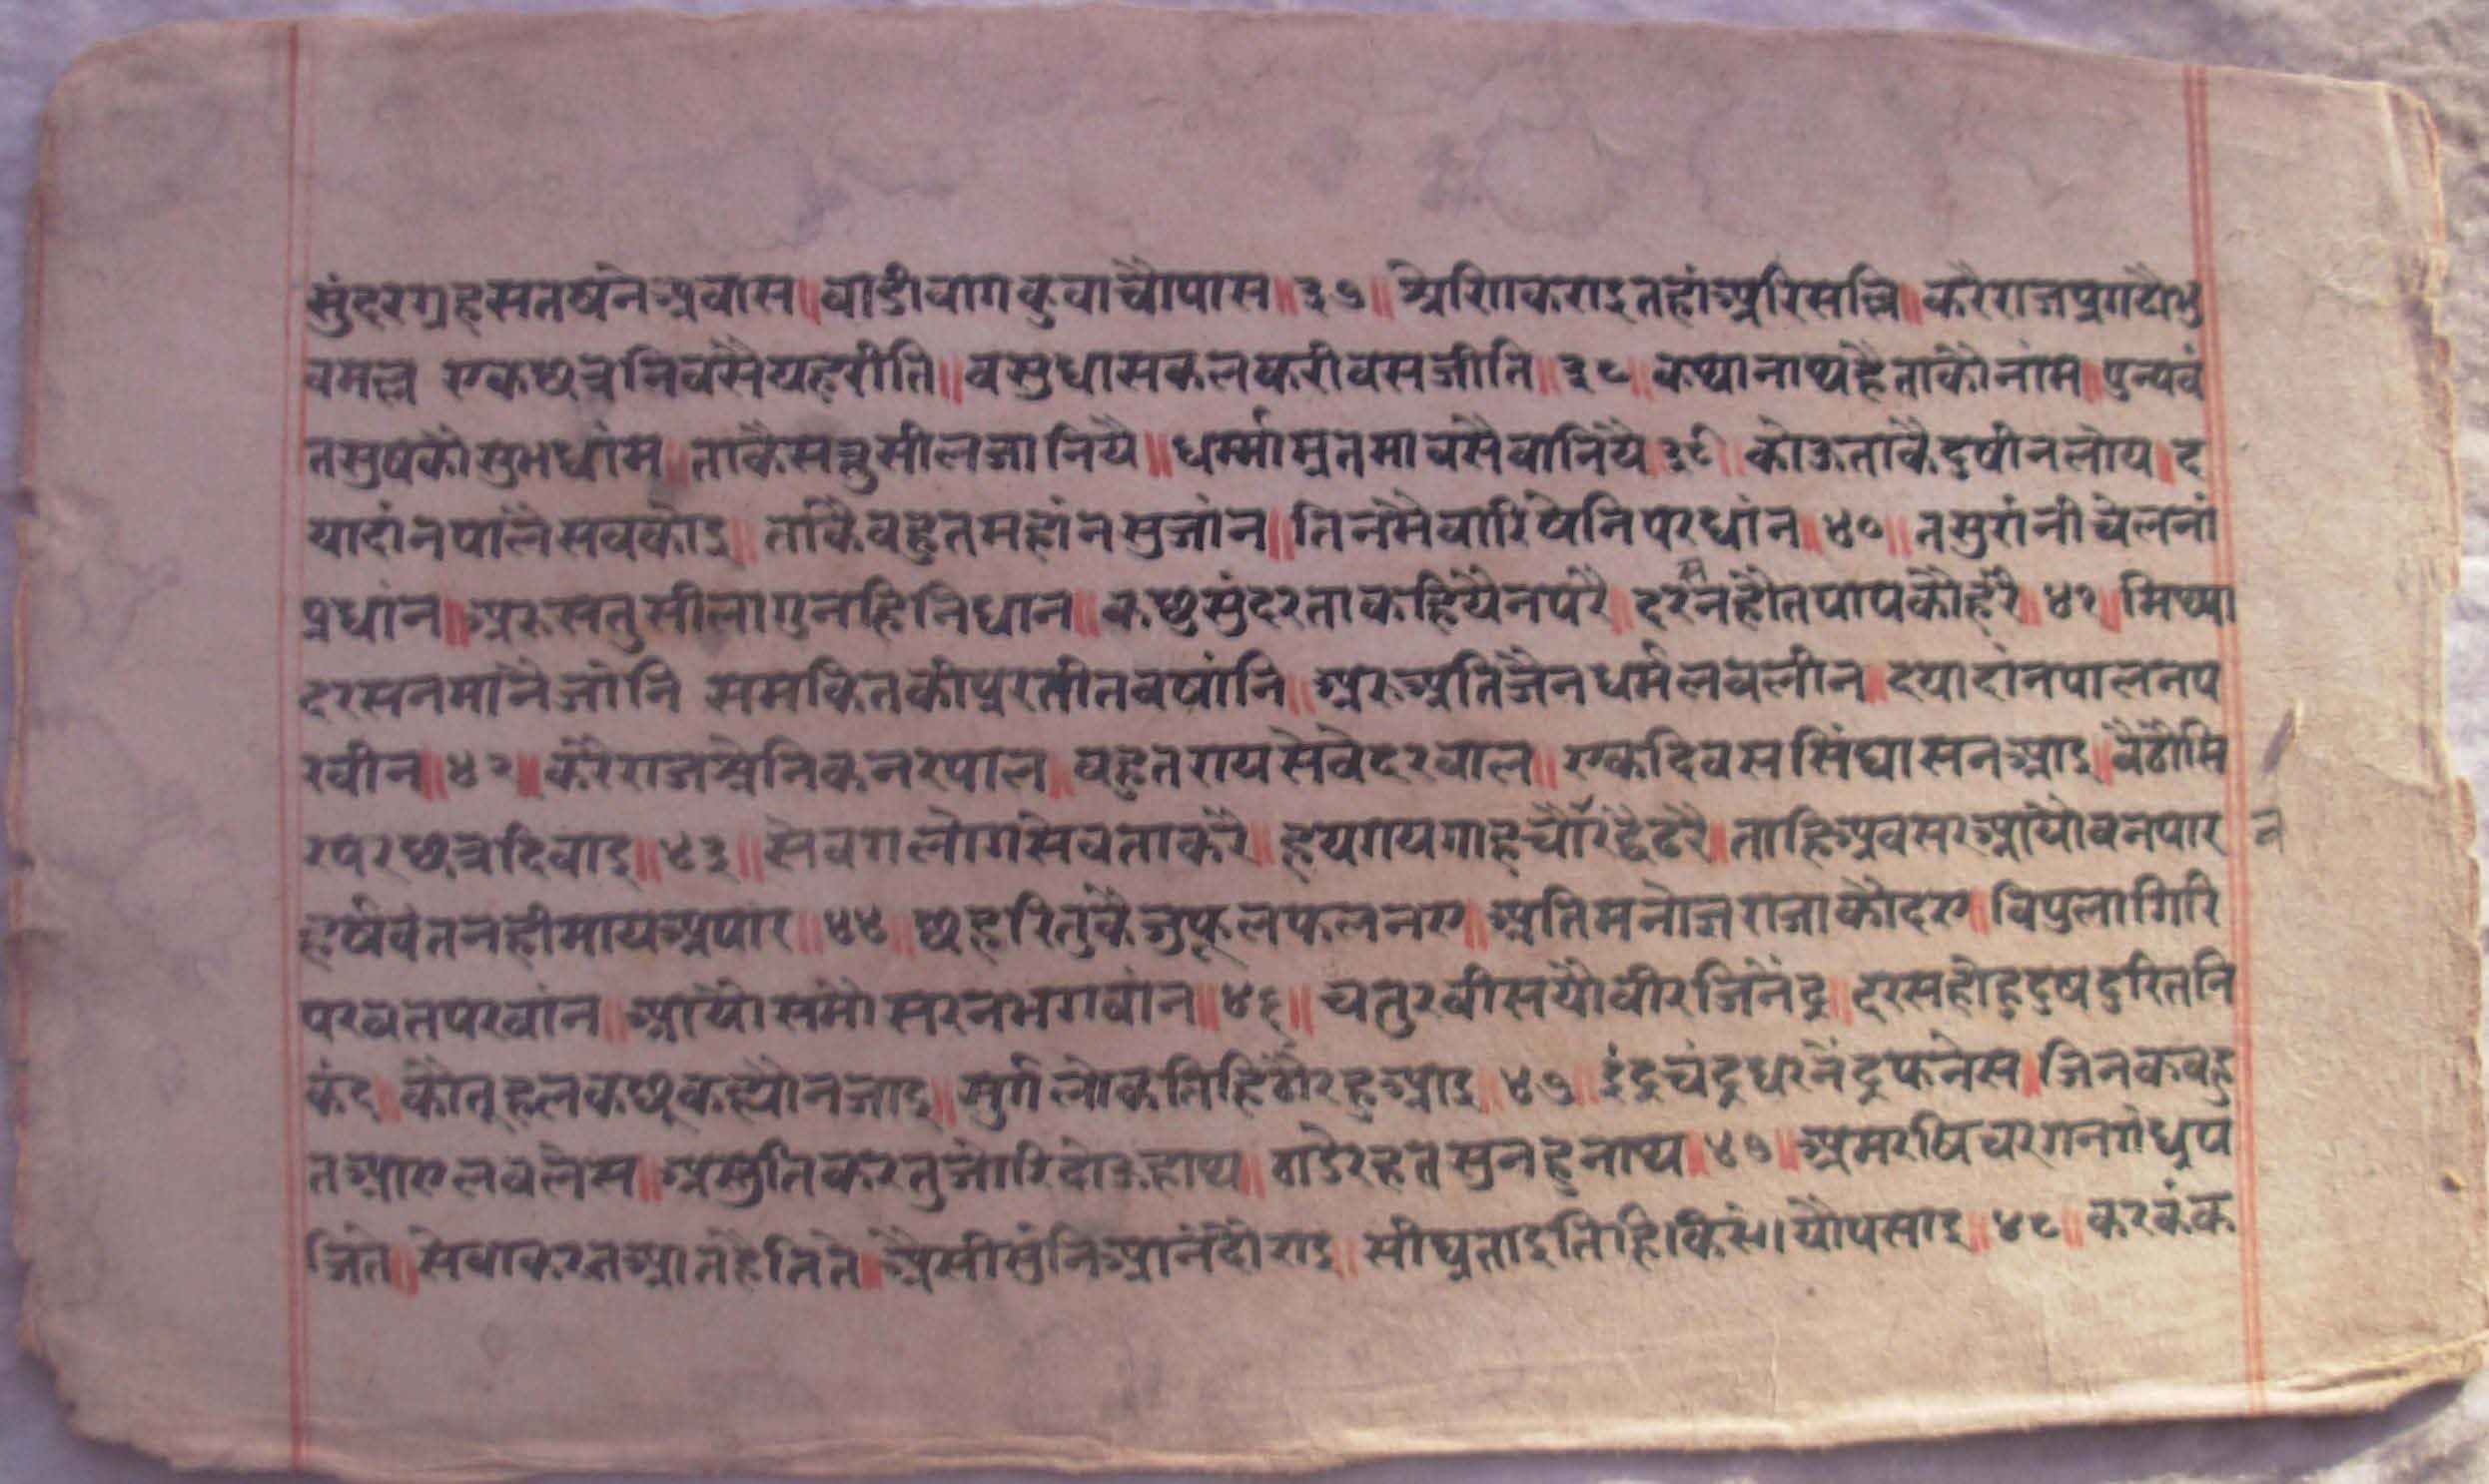 सुंदरग्रहसतषनेअवास॥वाडीवागकुवाचौपास॥३७॥श्रेणिकराइतहांअरिसल्लि॥करैराजप्रगटौभु
वमल्ल एकछत्रनिवसैयहरीति॥वसुधासकलकरीवसजीति॥३८॥कथानाथहैताकौनांम॥पुन्यवं
तसुषकौसुभधांम॥ताकैसत्नुसीलजानियै॥धर्म्मामृतमावसैवानियै३९॥कोऊताकैदुषीनलोय॥द
यादांनपालैसवकोइ॥ताकैवहुतमहांनसुजांन॥तिनमैचारिषेनिपरधांन॥४०॥तसुरांनीचेलनां
प्रधांन॥अरुसतुसीलागुनहिनिधान॥कछुसुंदरताकहियैनपरै॥दरसनहौतपापकौहरै॥४१॥मिथ्या
दरसनमांनैजोंनि समकितकीपरतीतवषांनि॥अरुअतिजैनधर्मलवलीन॥दयादांनपालनप
रवीन॥४२॥करैराजश्रेनिकनरपाल॥वहुतरायसेवेदरवाल॥एकदिवससिंघासनआइ॥वैठौसि
रपरछत्रदिवाइ॥४३॥सेवगलोगसेवताकरै॥हयगयगाहचौंरद्वैढरै॥ताहिअवसरआयोवनपार न
हर्षवंतनहीमायअपार॥४४॥छहरितुकैजुफूलफलनए॥अतिमनोजराजाकौदए॥विपुलागिरि
परवतपरवांन॥आयौसमोसरनभगवांन॥४६॥चतुरवीसयौवीरजिनेंद्र॥दरसहोहुदुषदुरितनि
कंद॥कौतूहलकछूकह्यौनजाइ॥सुर्गलोकतिहिठौरहुआइ॥४७॥इंद्रचंद्रधरनेंद्रफनेस॥जिनकवहु
तआएलवलेस॥अस्तुतिकरतुजोरिदोऊहाथ॥ठाडेरहतसुनहुनाथ॥४७॥अमरषिचरगनगंध्रप
जिते॥सेवाकरतआतहैतिते॥अैसीसुंनिआनंदौराइ॥सीघ्रताइतिहिकिंसंयौपसाइ॥४८॥करकंक